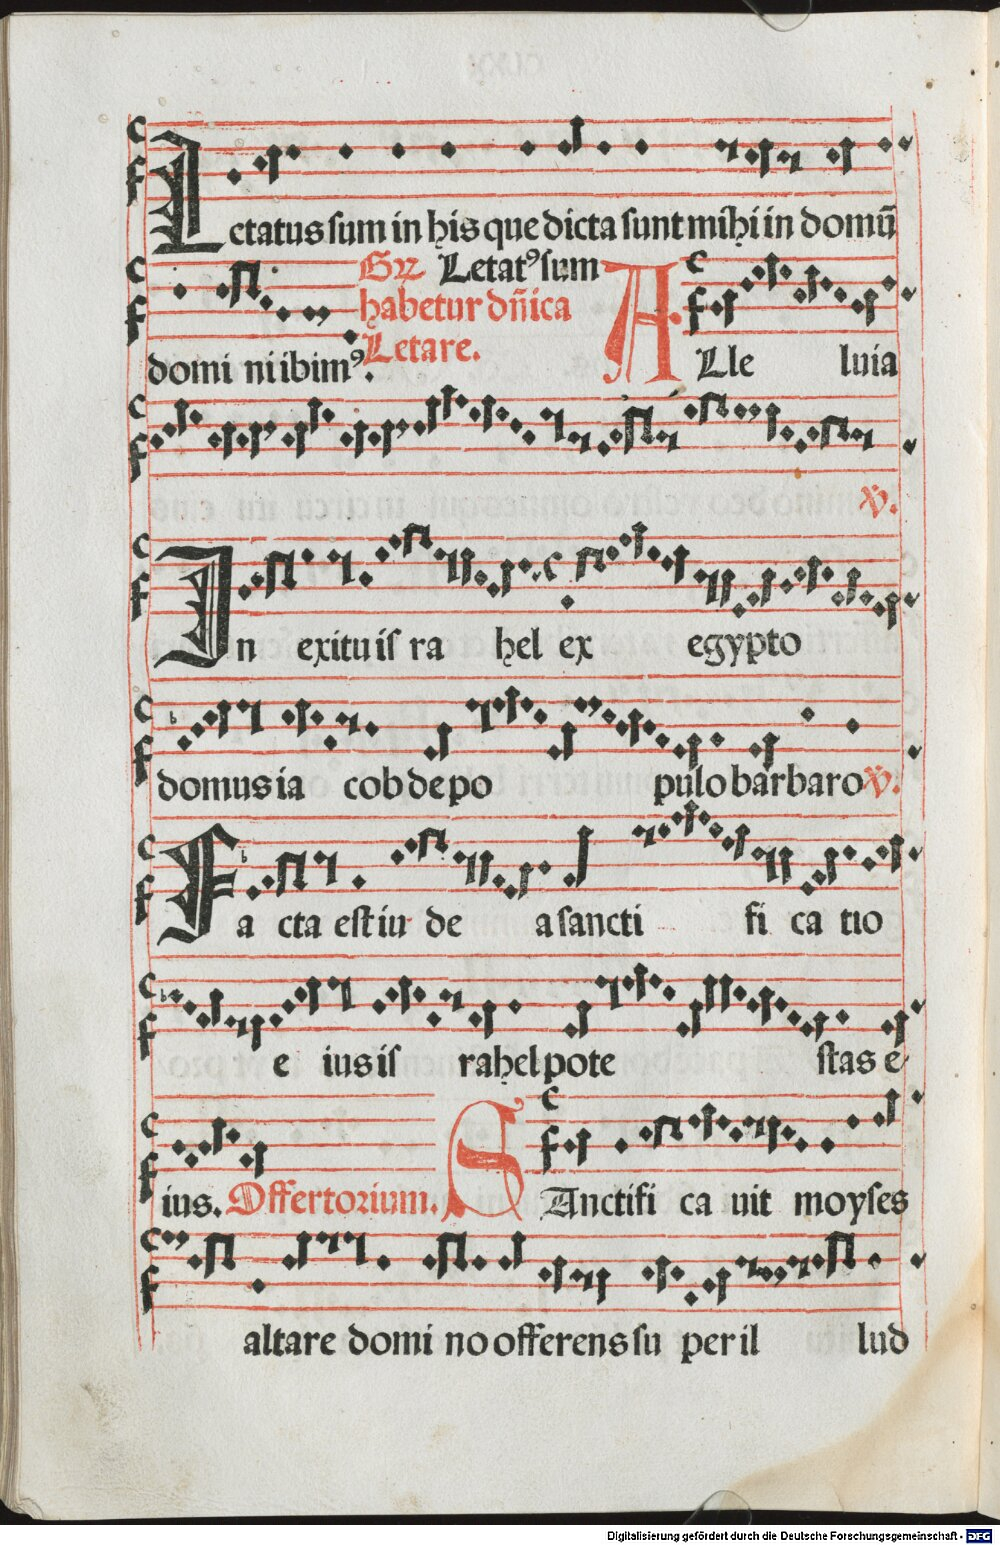 Letatus sum in his que dicta sunt mihi in domū
Gr Letatꝰ sum
habetur dn̄ica
Letare.
domi ni ibimꝰ.
A Lle luia
℣.
In exitu is ra hel ex egypto
domus ia cob de po pulo barbaro ℣.
Facta est iu de a sancti fi ca tio
e ius is rahel pote stas e
ius. Offertorium. SAnctifi ca uit moyses
altare domi no offerens su per il lud
Digitalisierung gefördert durch die Deutsche Forschungsgemeinschaft - DFG